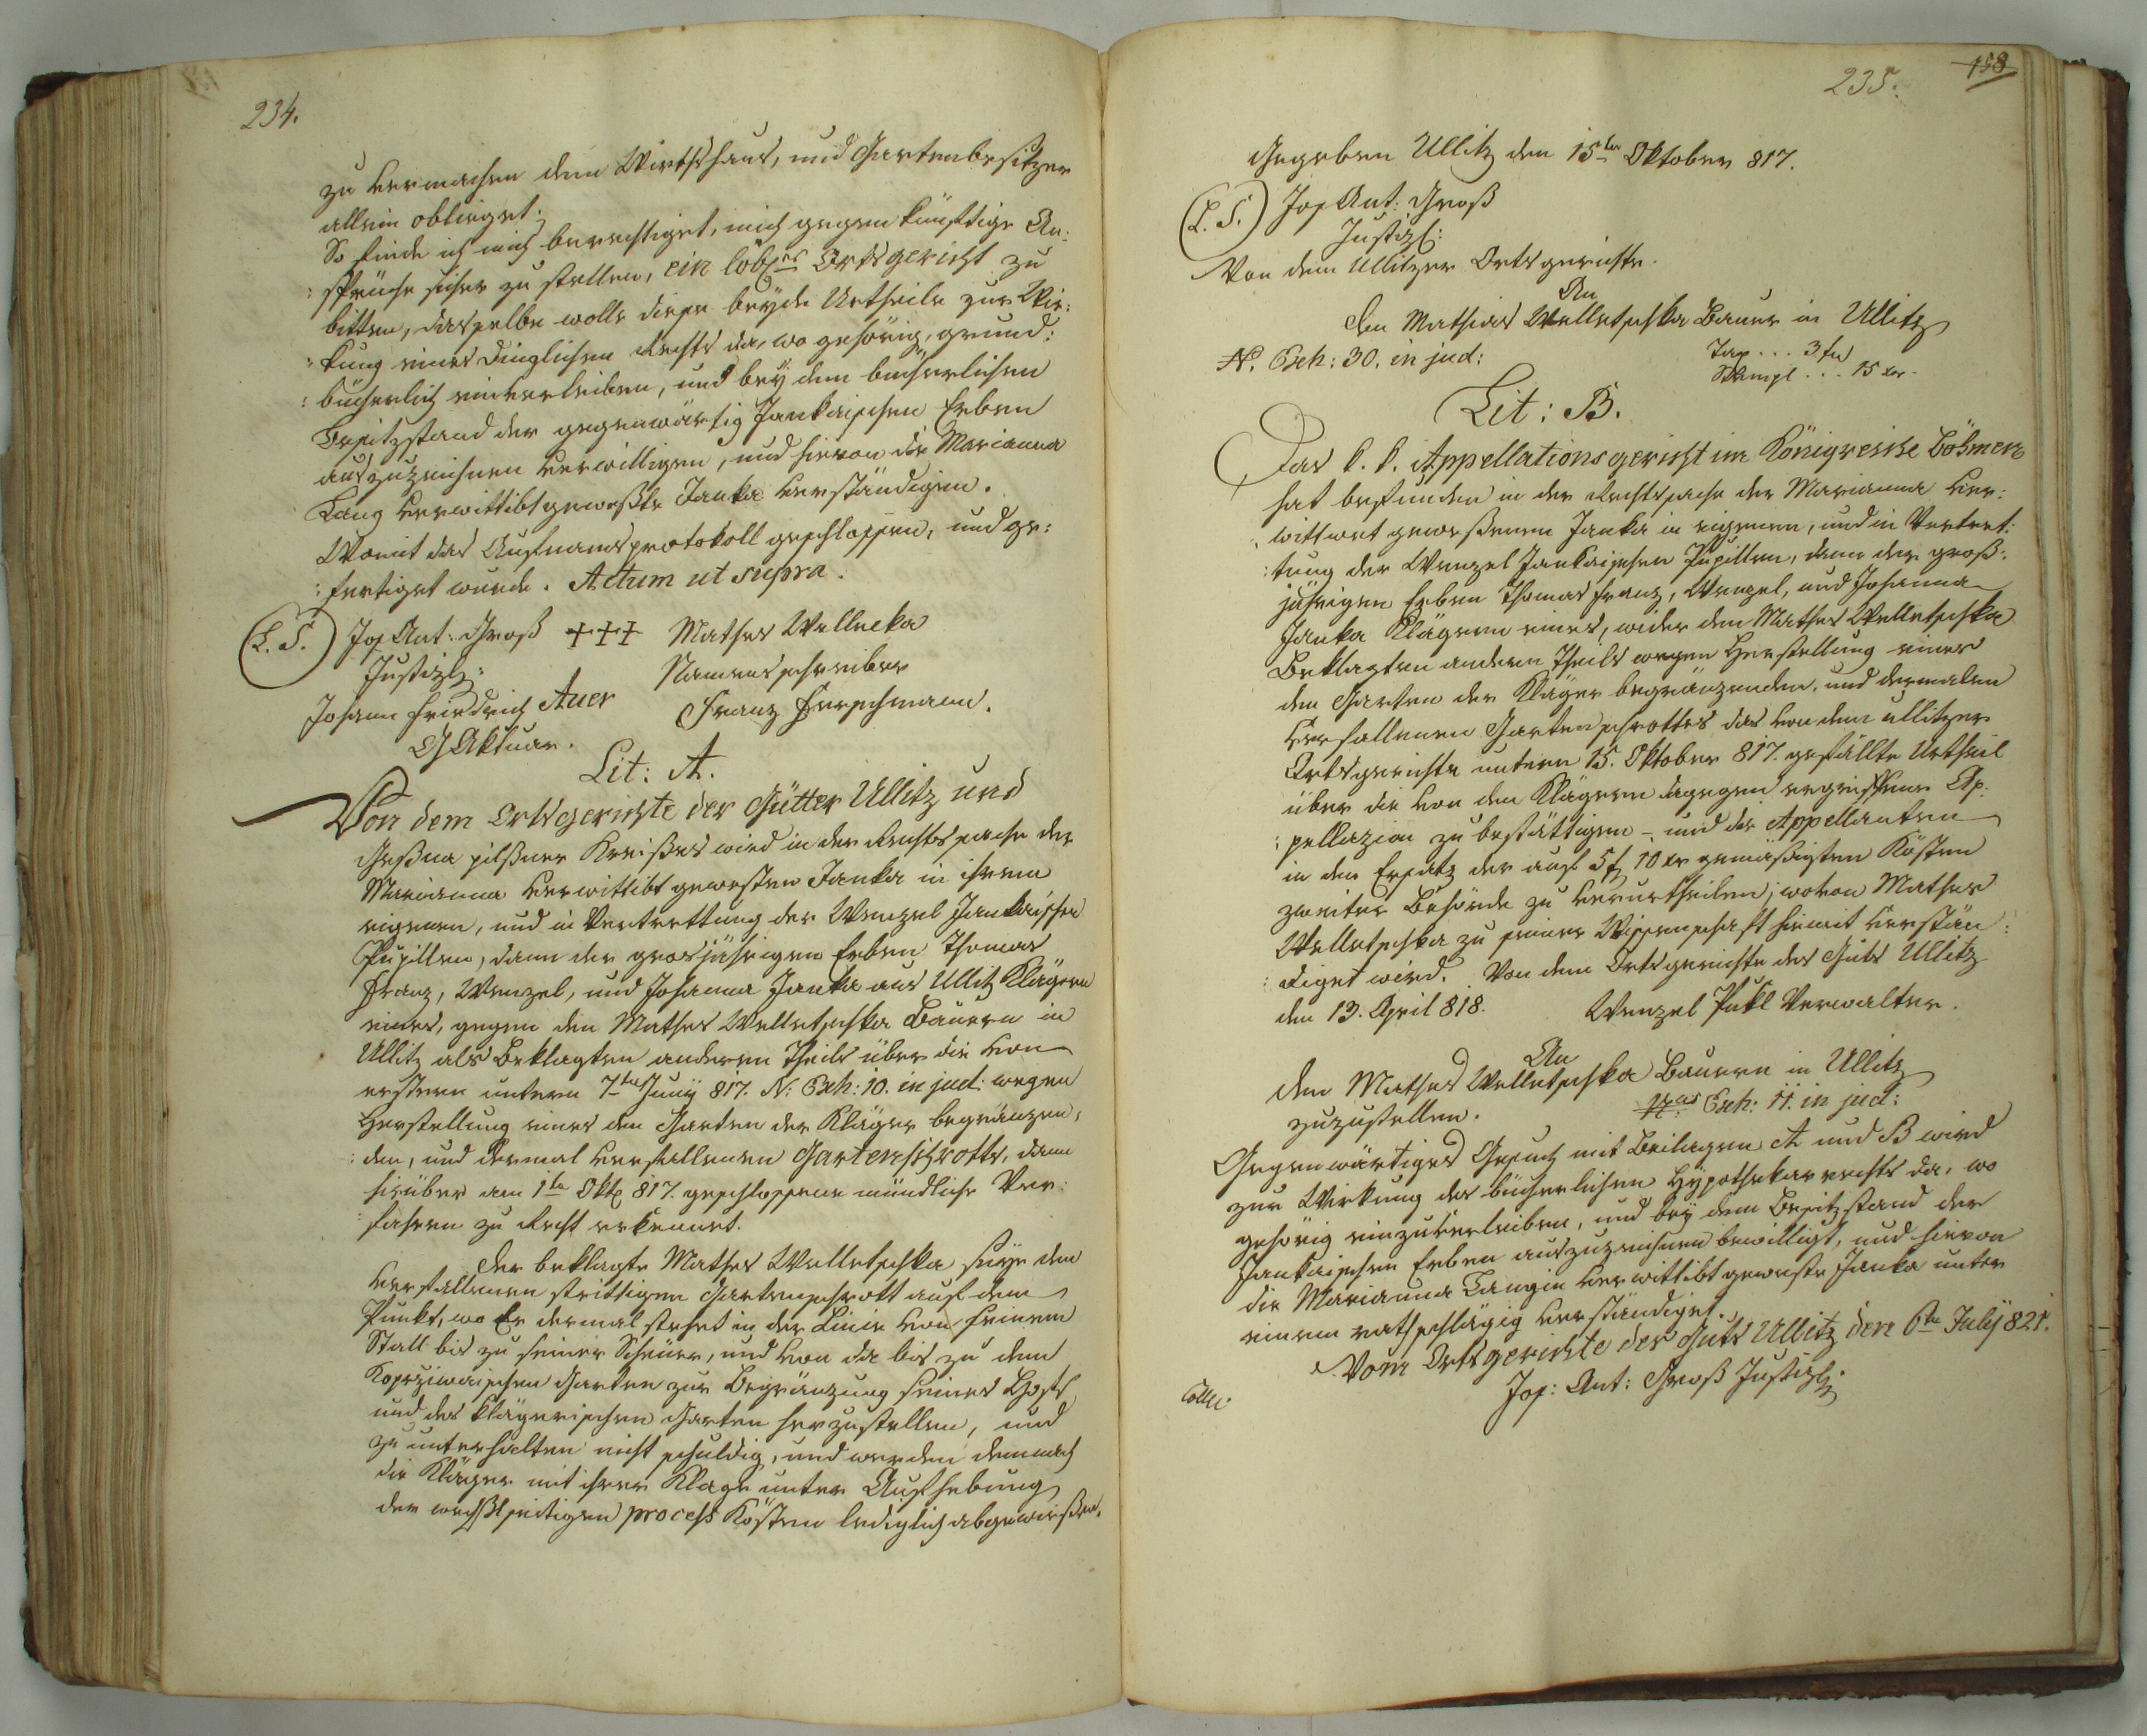 234.
zu vermachen dem Wirthshaus, und Gartenbesitzer
allein oblieget.
So finde ich mich berechtiget, mich gegen künftige An:
:sprüche sicher zu stellen, ein löbl. Ortsgericht zu
bitten, dasselbe wolle diese beyde Urtheile zur Wir:
:kung eines dinglichen Rechts da, wo gehörig, grund:
:bücherlich einverleiben, und bey dem bücherlichen
Besitzstand der gegenwärtig Jankaischen Erben
auszuzeichnen verwilligen, und hievon die Marianna
Lang verwittibt geweßte Janka verständigen.
Womit das Aufnamsprotokoll geschlossen, und ge:
:fertiget wurde. Actum ut supra.
(L. S.) Jos Ant: Groß +++ Mathes
Justizl: Namensschreiber
Johann Friedrich Auer Franz Herschmann.
GAktuar.
Lit: A.
Von dem Ortsgerichte der Gütter Ullitz und
pilßner Kreißes wird in der Rechtssache der
Marianna verwittibt gewesten Janka in ihrem
eigenen, und in Vertrettung der Wenzel Jankaischen
Pupillen, dann der grosjährigen Erben Thomas
Franz, Wenzel, und Johanna Janka aus Ullitz Klägern
eines, gegen den Mathes Welletschka Bauern in
Ullitz als Beklagten anderen Theils über die von
ersteren unterm 7ten Juny 817. N: Exh: 10. in jud: wegen
Herstellung eines den Garten der Kläger begränzen:
:den, und dermal verfallenen Gartenschrotts, dann
hirüber am 1ten Oktb 817. geschlossene mündliche Ver:
:fahren zu Recht erkennet.
Der beklagte Mathes Welletschka seye den
verfallenen strittigen Gartenschrott auf dem
Punkt, wo Er dermal stehet in der Linie von seinem
Stall bis zu seiner Scheuer, und von da bis zu dem
Garten zur Begränzung seines Hofs
und des klägerischen Garten herzustellen, und
zu unterhalten nicht schuldig, und werden demnach
die Kläger mit ihrer Klage unter Aufhebung
der wechßelseitigen process Kösten lediglich abgewießen.
235.
158
Gegeben Ullitz den 15ten Oktober 817.
(L. S.) Jos Ant: Groß
Justizl:
Von dem Ullitzer Ortsgerichte.
An
den Mathias Welletschka Bauer in Ullitz
N. Exh: 30. in jud: Tax . . . 3 fr
Stempl . . . 15 xr.
Lit: B.
Das k. k. Appellationsgericht im Königreiche Böhmen
hat befunden in der Rechtssache der Marianna ver:
:wittwet geweßenen Janka in eigenen, und in Vertret:
:tung der Wenzel Jankaischen Pupillen, dann der groß:
jährigen Erben Thomas Franz, Wenzel, und Johanna
Janka Klägern eines, wider den Mathes Welletschka
Beklagten andern Theils wegen Herstellung eines
den Garten der Kläger begränzenden, und dermalen
verfallenen Gartenschrottes das von dem ullitzer
Ortsgerichte unterm 15. Oktober 817. gefällte Urtheil
über die von den Klägern dagegen ergriffene Ap:
:pellazion zu bestättigen – und die Appellanten
in den Ersatz der auf 5 f 10 xr gemäßigten Kösten
zweiter Behörde zu verurtheilen; wovon Mathes
Welletschka zu seiner Wissenschaft hiemit verstän:
:diget wird. Von dem Ortsgerichte des Guts Ullitz
den 13. April 818. Wenzel Pukl Verwalter.
An
den Mathes Welletschka Bauern in Ullitz
zuzustellen. Nus Exh: 11. in jud:
Gegenwärtiges Gesuch mit Beilagen A und B wird
zur Wirkung des bücherlichen Hypothekarrechts da, wo
gehörig einzuverleiben, und bey dem Besitzstand der
Jankaischen Erben auszuzeichnen bewilligt, und hievon
die Marianna Langin verwittibt geweste Janka unter
einem rathschlägig verständiget.
Vom Ortsgerichte des Guts Ullitz den 6ten July 821.
Jos: Ant: Groß Justizl: